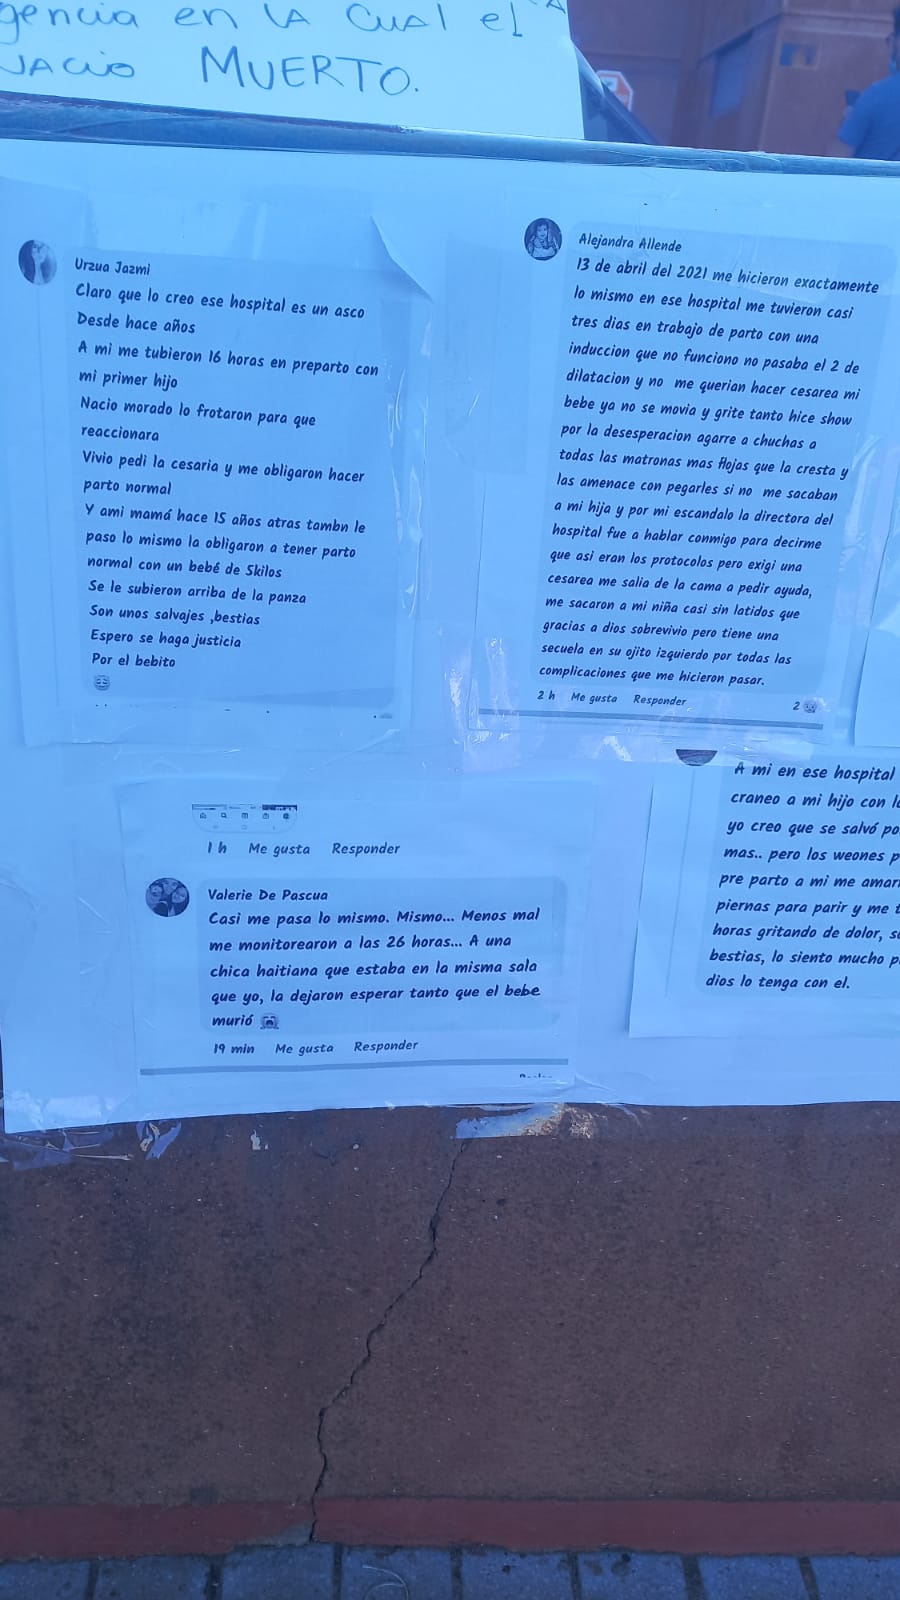 gencia en la cual el
nacio MUERTO.
Urzua Jazmi
Claro que lo creo ese hospital es un asco
Desde hace años
A mi me tubieron 16 horas en preparto con
mi primer hijo
Nacio morado lo frotaron para que
reaccionara
Vivio pedi la cesaria y me obligaron hacer
parto normal
Y ami mamá hace 15 años atras tambn le
paso lo mismo la obligaron a tener parto
normal con un bebé de 5kilos
Se le subieron arriba de la panza
Son unos salvajes ,bestias
Espero se haga justicia
Por el bebito
Alejandra Allende
13 de abril del 2021 me hicieron exactamente
lo mismo en ese hospital me tuvieron casi
tres dias en trabajo de parto con una
induccion que no funciono no pasaba el 2 de
dilatacion y no me querian hacer cesarea mi
bebe ya no se movia y grite tanto hice show
por la desesperacion agarre a chuchas a
todas las matronas mas flojas que la cresta y
las amenace con pegarles si no me sacaban
a mi hija y por mi escandalo la directora del
hospital fue a hablar conmigo para decirme
que asi eran los protocolos pero exigi una
cesarea me salia de la cama a pedir ayuda,
me sacaron a mi niña casi sin latidos que
gracias a dios sobrevivio pero tiene una
secuela en su ojito izquierdo por todas las
complicaciones que me hicieron pasar.
2 h Me gusta Responder 2
1 h Me gusta Responder
Valerie De Pascua
Casi me pasa lo mismo. Mismo... Menos mal
me monitorearon a las 26 horas... A una
chica haitiana que estaba en la misma sala
que yo, la dejaron esperar tanto que el bebe
murió
19 min Me gusta Responder
A mi en ese hospital
craneo a mi hijo con
yo creo que se salvó
mas.. pero los weones
pre parto a mi me
piernas para parir y me
horas gritando de dolor,
bestias, lo siento mucho
dios lo tenga con el.